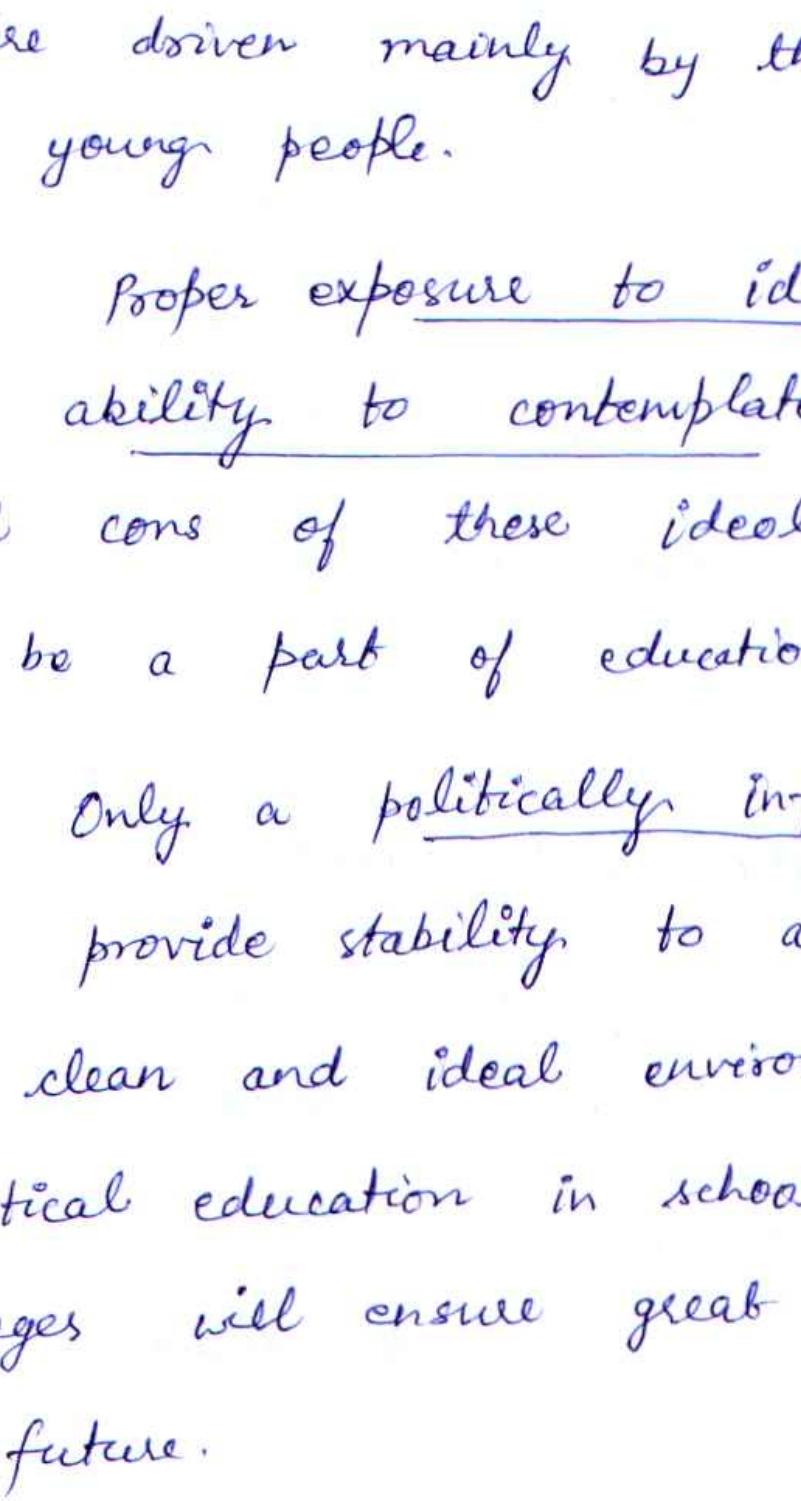 re driven mainly by th
young people.
Proper exposure to id
ability to contemplat
cons of these ideol
be a part of educatio
Only a politically in-
provide stability to a
clean and ideal enviro
tical education in schoo
ges will ensure great
future.